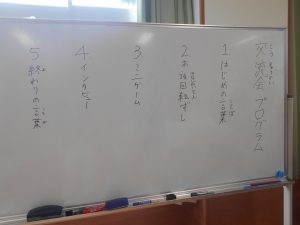 交流会 プログラム
1 はじめの言葉
2 お話回転ずし
3 ミニゲーム
4 インタビュー
5 終わりの言葉